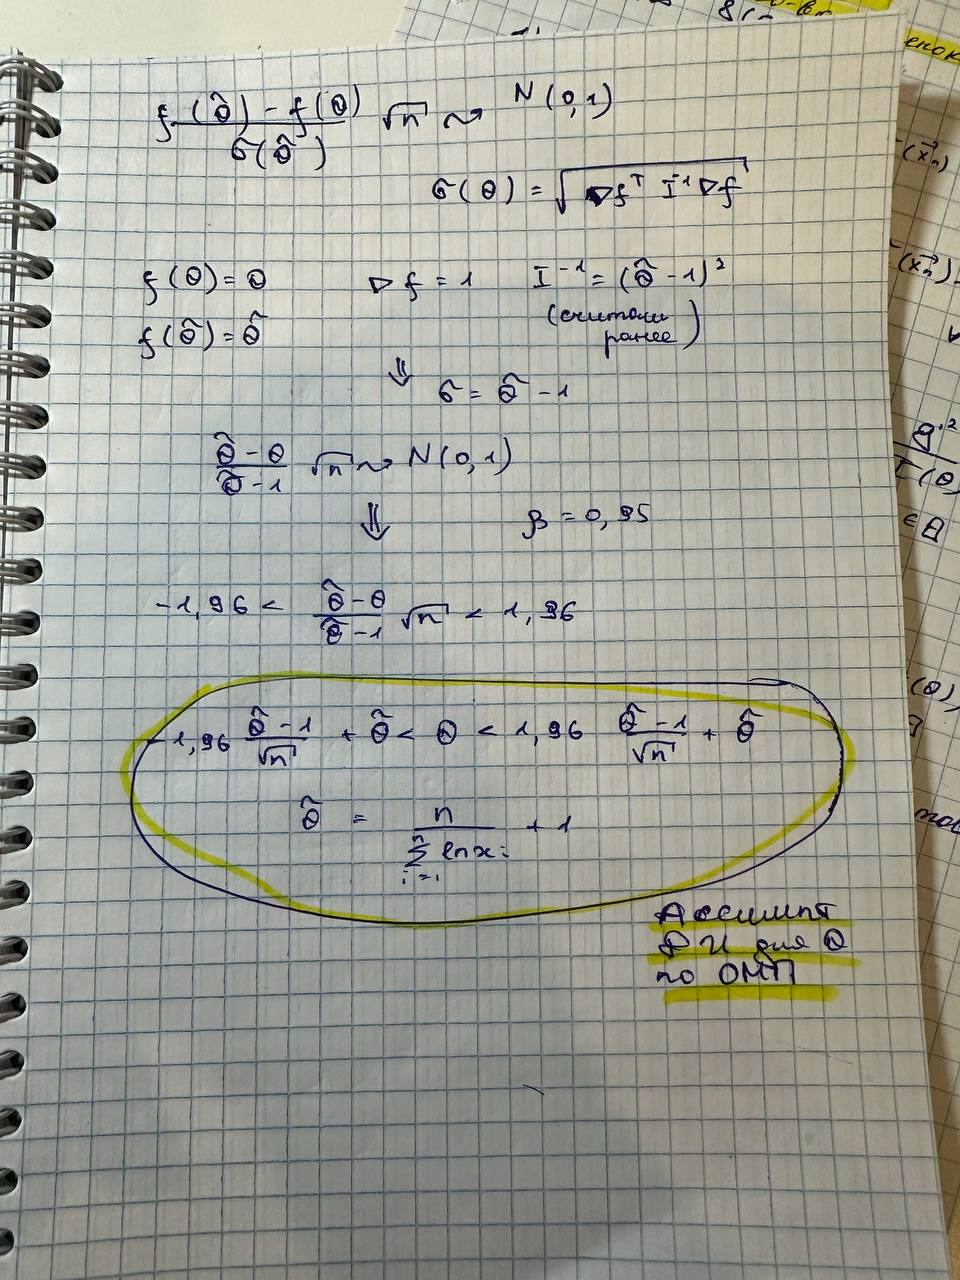 f(θ̃) - f(θ) / σ(θ̃) √n ⇝ N(0,1)
σ(θ) = √(∇fᵀ I⁻¹ ∇f)
f(θ) = θ ∇f = 1 I⁻¹ = (θ̃ - 1)²
f(θ̃) = θ̃ (считали
ранее)
⇓ σ = θ̃ - 1
θ̃ - θ / θ̃ - 1 √n ⇝ N(0,1)
⇓ β = 0,95
-1,96 < θ̃ - θ / θ̃ - 1 √n < 1,96
-1,96 θ̃ - 1 / √n + θ̃ < θ < 1,96 θ̃ - 1 / √n + θ̃
θ̃ = n / Σⁿᵢ₌₁ ln xᵢ + 1
Ассимпт
ДИ для θ
по ОМП
(x⃗ₙ)
(x⃗ₙ)
I(θ)
∈ Θ
(θ),